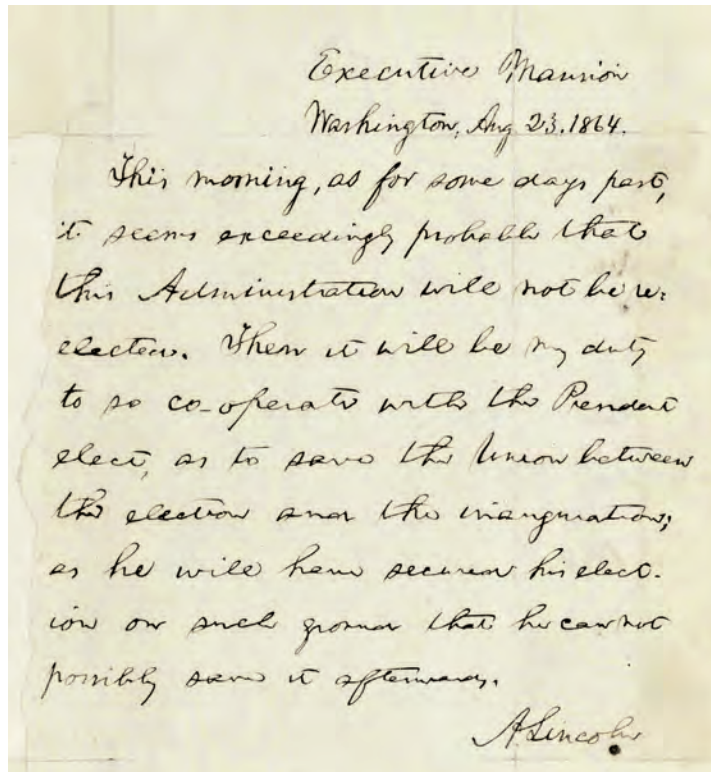 Executive Mansion
Washington, Aug 23, 1864.
This morning, as for some days past,
it seems exceedingly probable that
this Administration will not be re-
elected. Then it will be my duty
to so co-operate with the President
elect, as to save the Union between
the election and the inauguration;
as he will have secured his elect-
ion on such ground that he can not
possibly save it afterwards.
A. Lincoln